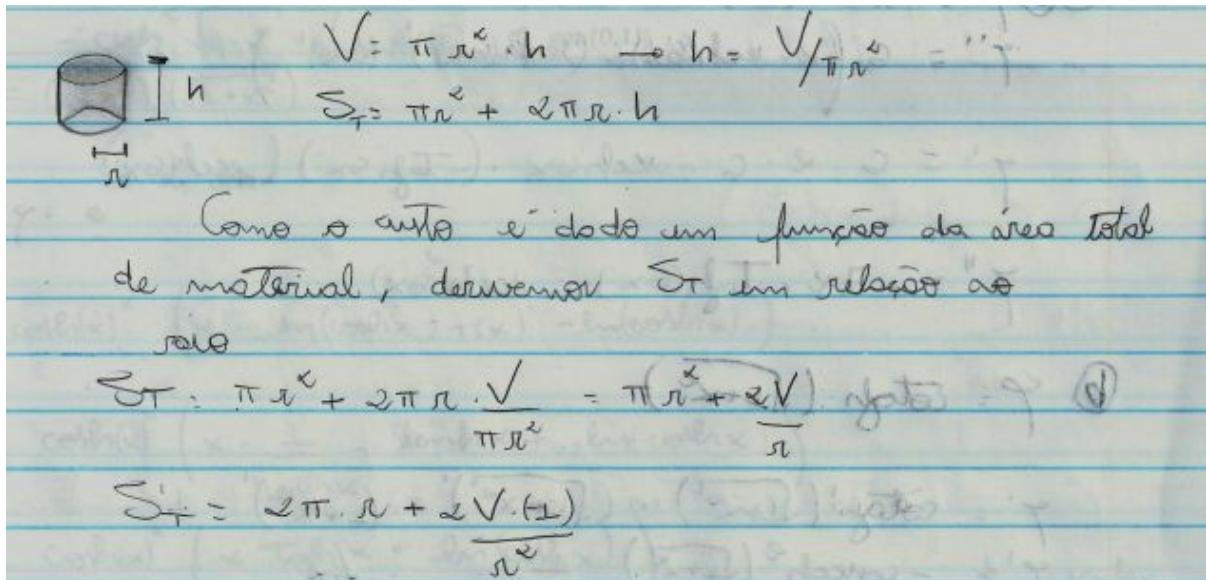 V = πr² · h → h = V/πr²
h
S_T = πr² + 2πr · h
r
Como o custo é dado em função da área total
de material, derivemos S_T em relação ao
raio
S_T = πr² + 2πr · V/πr² = πr² + 2V/r
S'_T = 2π · r + 2V·(-1)/r²